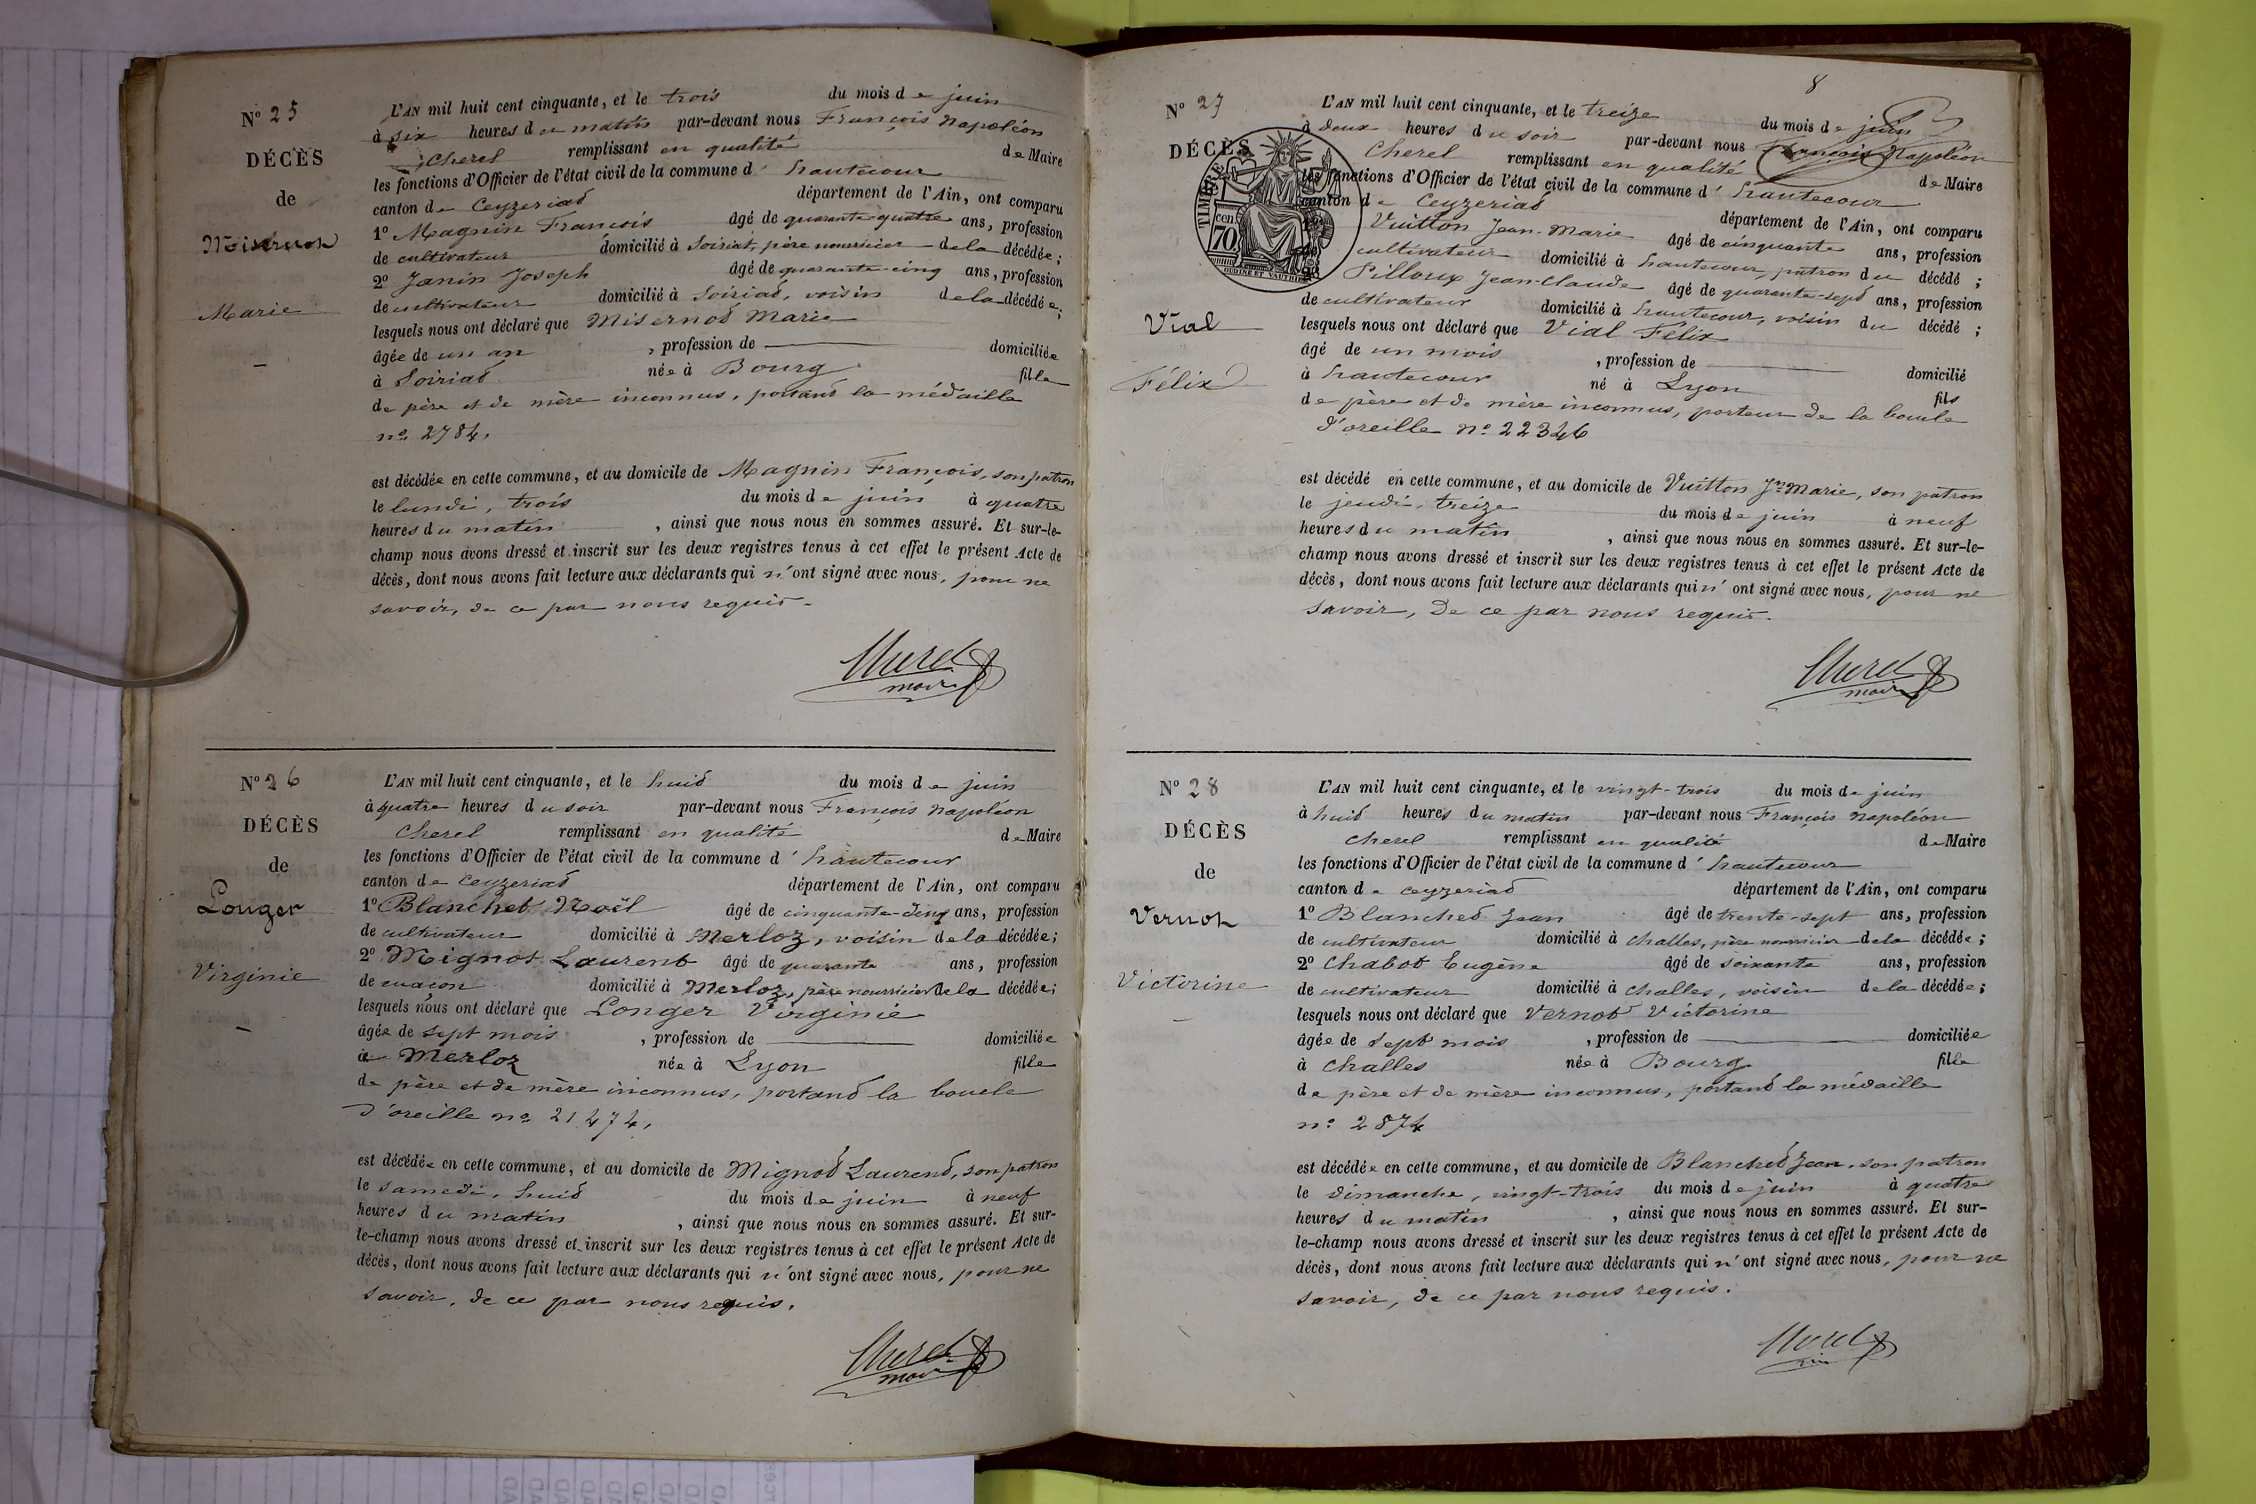 N° 25
DÉCÈS
de
Misernot
Marie
L'AN mil huit cent cinquante, et le trois du mois de juin
à six heures du matin par-devant nous François Napoléon
Cherel remplissant en qualité de Maire
les fonctions d'Officier de l'état civil de la commune d'hautecour
canton de Ceyzeriat département de l'Ain, ont comparu
1° Magnin François âgé de quarante quatre ans, profession
de cultivateur domicilié à Soiriat, père nourricier de la décédée;
2° Janin Joseph âgé de quarante-cinq ans, profession
de cultivateur domicilié à Soiriat, voisin de la décédée;
lesquels nous ont déclaré que Misernot Marie
âgée de un an, profession de domiciliée
à Soiriat née à Bourg fille
de père et de mère inconnus, portant la médaille
n° 2784.
est décédée en cette commune, et au domicile de Magnin François, son patron
le lundi, trois du mois de juin à quatre
heures du matin, ainsi que nous nous en sommes assuré. Et sur-le-
champ nous avons dressé et inscrit sur les deux registres tenus à cet effet le présent Acte de
décès, dont nous avons fait lecture aux déclarants qui n'ont signé avec nous, pour ne
savoir, de ce par nous requis.
Cherel
maire
N° 26
DÉCÈS
de
Longer
Virginie
L'AN mil huit cent cinquante, et le huit du mois de juin
à quatre heures du soir par-devant nous François Napoléon
Cherel remplissant en qualité de Maire
les fonctions d'Officier de l'état civil de la commune d'hautecour
canton de Ceyzeriat département de l'Ain, ont comparu
1° Blanchet Noël âgé de cinquante-deux ans, profession
de cultivateur domicilié à Merloz, voisin de la décédée;
2° Mignot Laurent âgé de quarante ans, profession
de maçon domicilié à Merloz, père nourricier de la décédée;
lesquels nous ont déclaré que Longer Virginie
âgée de sept mois, profession de domiciliée
à Merloz née à Lyon fille
de père et de mère inconnus, portant la boucle
d'oreille n° 21474.
est décédée en cette commune, et au domicile de Mignot Laurent, son patron
le samedi, huit du mois de juin à neuf
heures du matin, ainsi que nous nous en sommes assuré. Et sur-
le-champ nous avons dressé et inscrit sur les deux registres tenus à cet effet le présent Acte de
décès, dont nous avons fait lecture aux déclarants qui n'ont signé avec nous, pour ne
savoir, de ce par nous requis.
Cherel
maire
8
N° 27
DÉCÈS
TIMBRE
70 cen
OUDINE ET VAUTHIER
Vial
Félix
L'AN mil huit cent cinquante, et le treize du mois de juin
à deux heures du soir par-devant nous François Napoléon
Cherel remplissant en qualité de Maire
les fonctions d'Officier de l'état civil de la commune d'hautecour
canton de Ceyzeriat département de l'Ain, ont comparu
Vuitton Jean-Marie âgé de cinquante ans, profession
cultivateur domicilié à hautecour, patron du décédé;
2° Pilloux Jean-Claude âgé de quarante-sept ans, profession
de cultivateur domicilié à hautecour, voisin du décédé;
lesquels nous ont déclaré que Vial Félix
âgé de un mois, profession de domicilié
à hautecour né à Lyon fils
de père et de mère inconnus, porteur de la boucle
d'oreille n° 22346
est décédé en cette commune, et au domicile de Vuitton Jn Marie, son patron
le jeudi, treize du mois de juin à neuf
heures du matin, ainsi que nous nous en sommes assuré. Et sur-le-
champ nous avons dressé et inscrit sur les deux registres tenus à cet effet le présent Acte de
décès, dont nous avons fait lecture aux déclarants qui n'ont signé avec nous, pour ne
savoir, de ce par nous requis.
Cherel
maire
N° 28
DÉCÈS
de
Vernot
Victorine
L'AN mil huit cent cinquante, et le vingt-trois du mois de juin
à huit heures du matin par-devant nous François Napoléon
Cherel remplissant en qualité de Maire
les fonctions d'Officier de l'état civil de la commune d'hautecour
canton de Ceyzeriat département de l'Ain, ont comparu
1° Blanchet Jean âgé de trente-sept ans, profession
de cultivateur domicilié à Challes, père nourricier de la décédée;
2° Chabot Eugène âgé de soixante ans, profession
de cultivateur domicilié à Challes, voisin de la décédée;
lesquels nous ont déclaré que Vernot Victorine
âgée de sept mois, profession de domiciliée
à Challes née à Bourg fille
de père et de mère inconnus, portant la médaille
n° 2874
est décédée en cette commune, et au domicile de Blanchet Jean, son patron
le dimanche, vingt-trois du mois de juin à quatre
heures du matin, ainsi que nous nous en sommes assuré. Et sur-
le-champ nous avons dressé et inscrit sur les deux registres tenus à cet effet le présent Acte de
décès, dont nous avons fait lecture aux déclarants qui n'ont signé avec nous, pour ne
savoir, de ce par nous requis.
Cherel